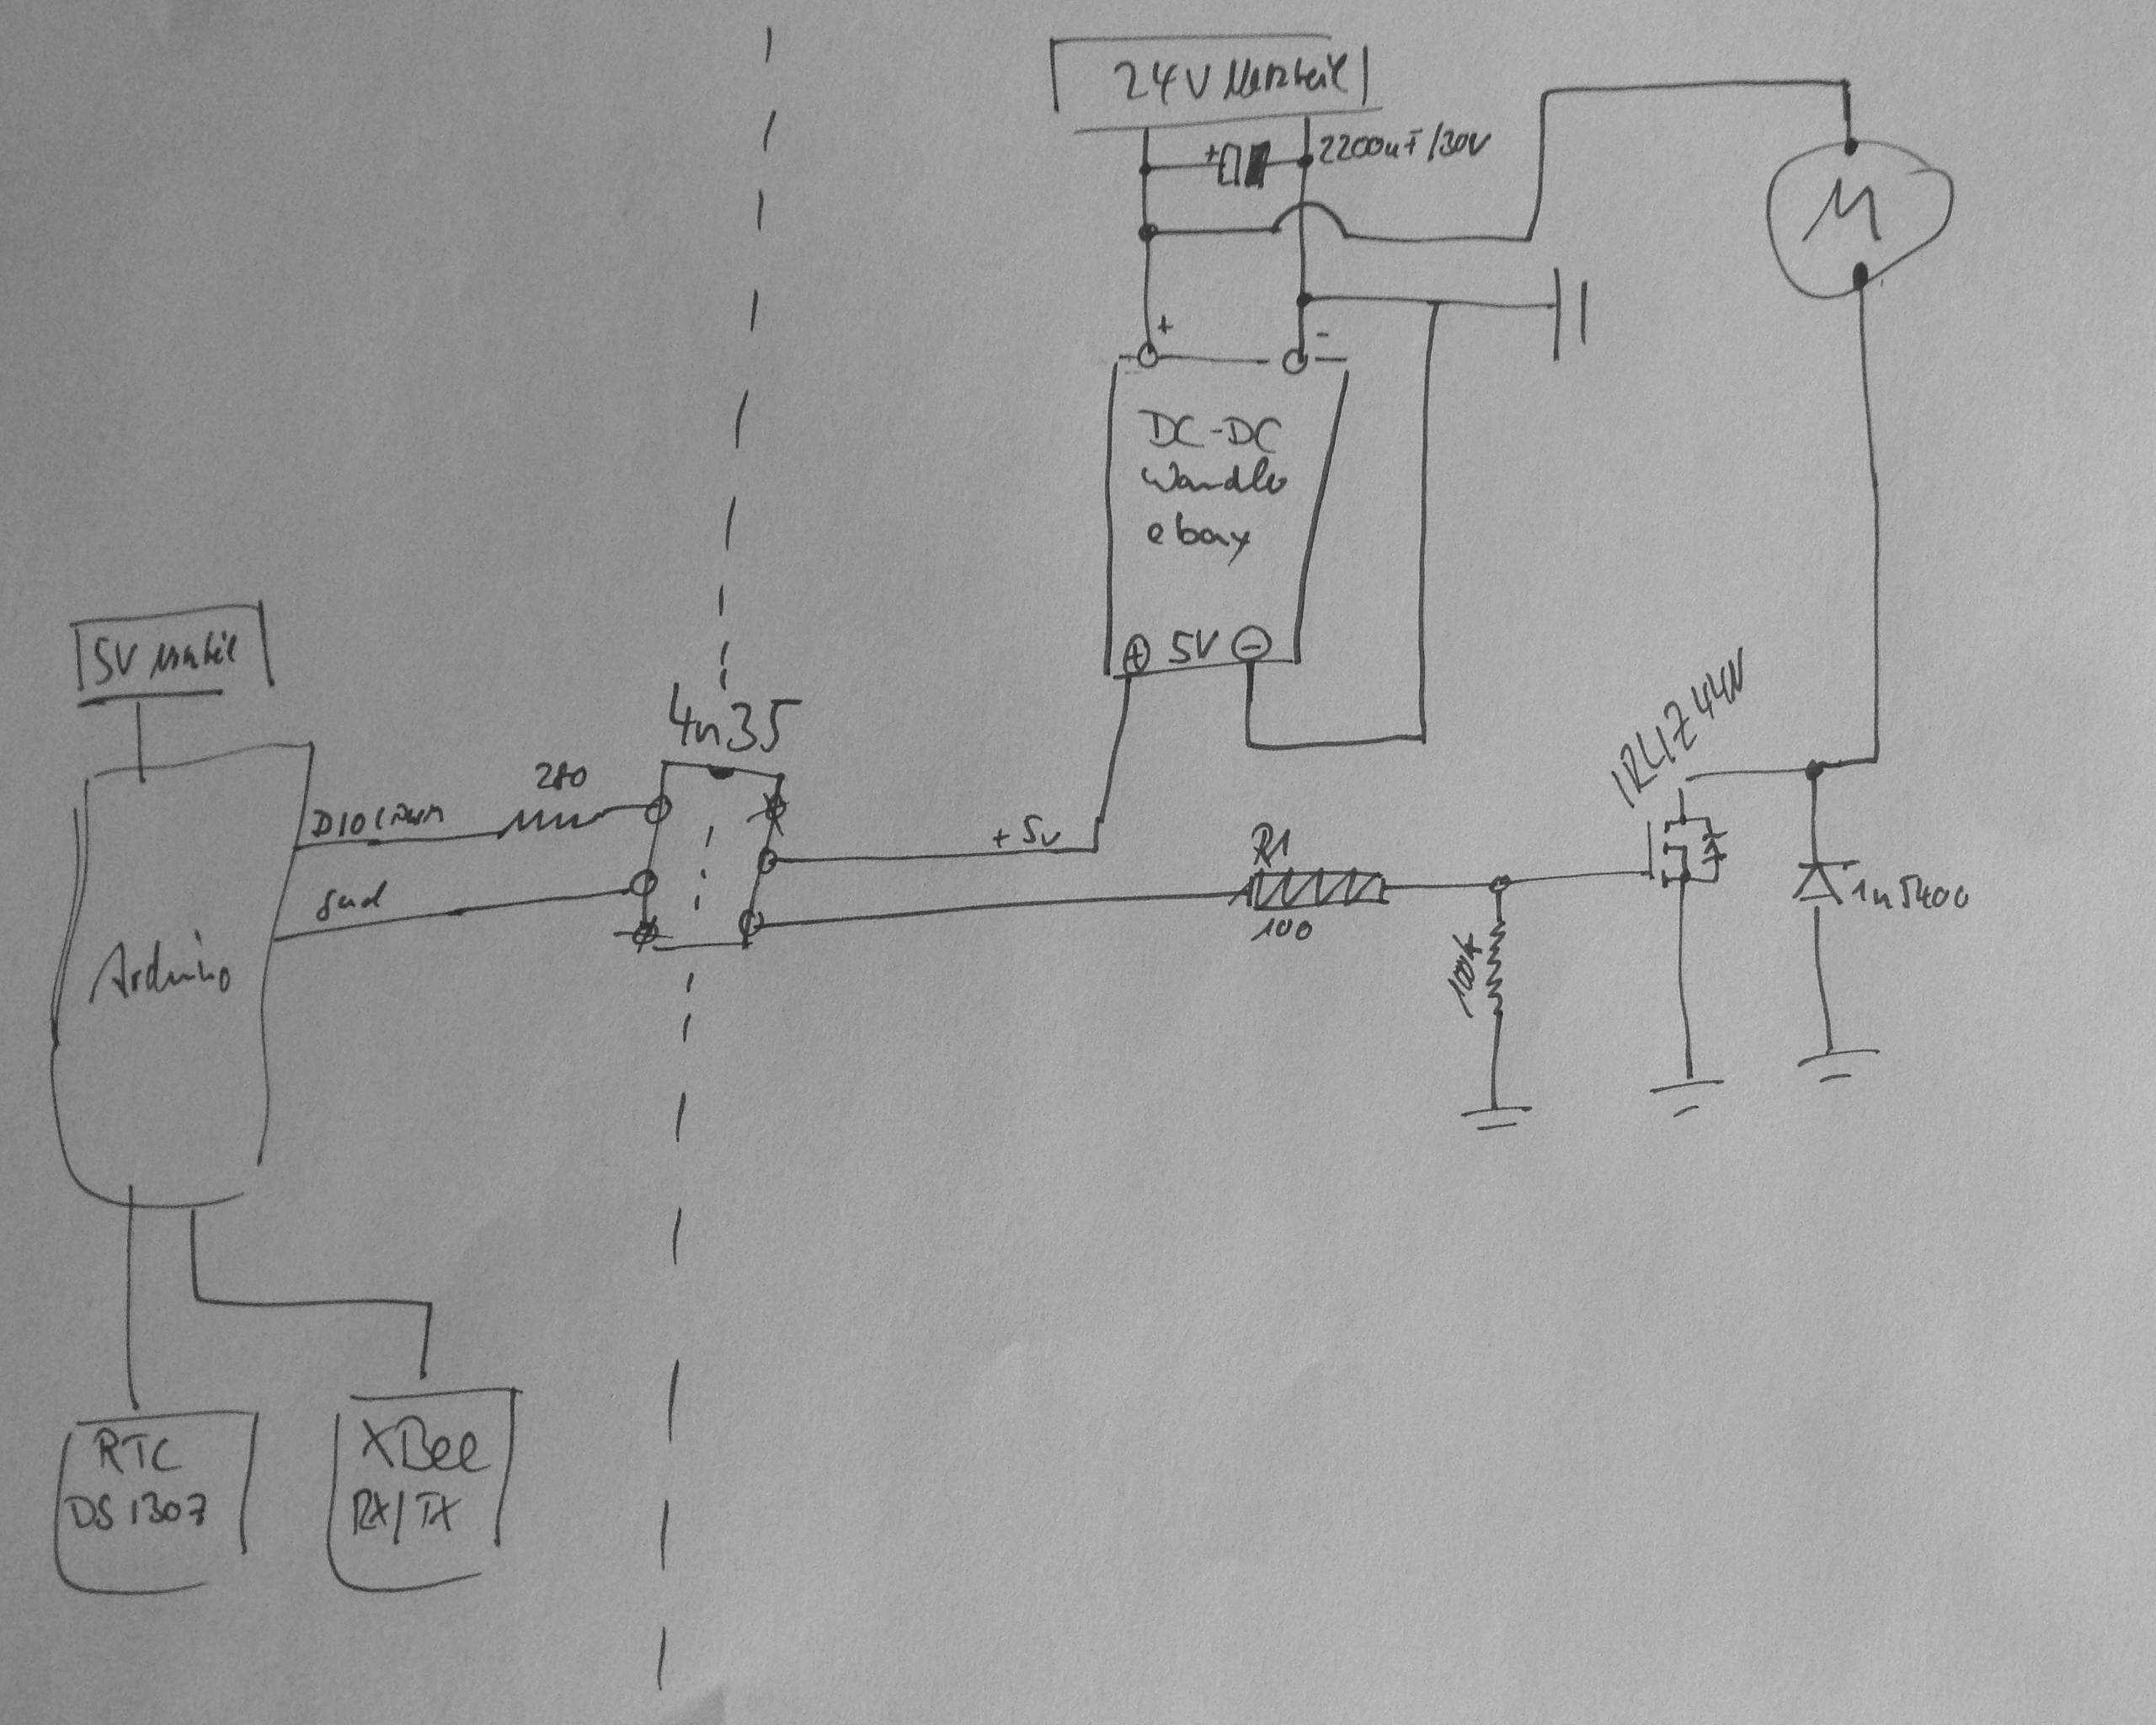 24V Netzteil
+
2200uF/30V
M
+
-
DC-DC
Wandler
ebay
+ 5V -
5V Netzteil
4n35
IRLIZ44N
D10 (PWM
280
+5v
R1
100
100k
1n5400
Gnd
Arduino
RTC
DS1307
XBee
RX/TX